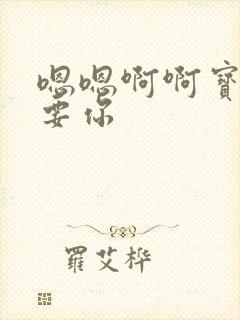 嗯嗯啊啊寶
要你
羅艾桦